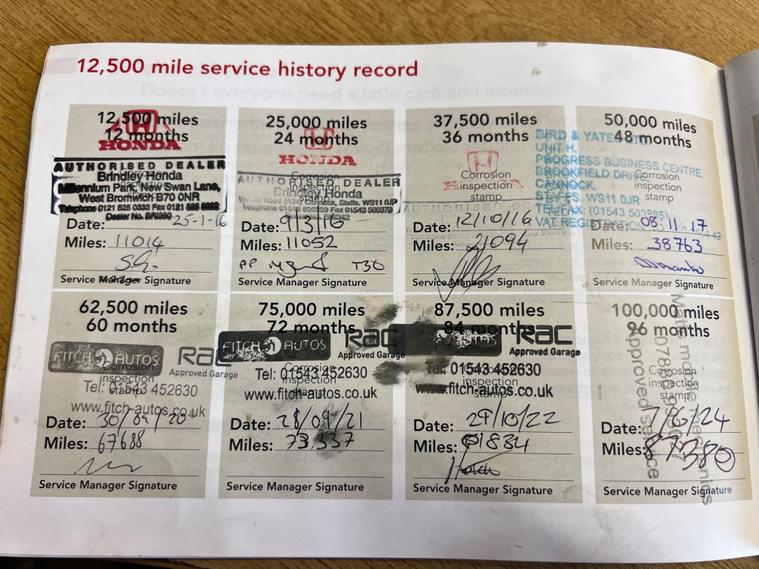 12,500 mile service history record
12,500 miles
12 months
HONDA
AUTHORISED DEALER
Brindley Honda
Millennium Park, New Swan Lane,
West Bromwich B70 0NR
Date: 25-1-16
Miles: 11014
Service Manager Signature
25,000 miles
24 months
HONDA
Corrosion
inspection
stamp
AUTHORISED DEALER
Brindley Honda
Date: 9/3/16
Miles: 11052
Service Manager Signature
37,500 miles
36 months
Corrosion
inspection
stamp
Date: 12/10/16
Miles: 21094
Service Manager Signature
50,000 miles
48 months
BIRD & YATES LTD
UNIT H,
PROGRESS BUSINESS CENTRE,
BROOKFIELD DRIVE
CANNOCK,
STAFFS, WS11 0JR
Corrosion
inspection
stamp
Date: 08.11.17
Miles: 38763
Service Manager Signature
62,500 miles
60 months
FITCH AUTOS
RAC
Approved Garage
Corrosion
inspection
stamp
Tel: 01543 452630
www.fitch-autos.co.uk
Date: 30/09/20
Miles: 67688
Service Manager Signature
75,000 miles
72 months
FITCH AUTOS
RAC
Approved Garage
Corrosion
inspection
stamp
Tel: 01543 452630
www.fitch-autos.co.uk
Date: 28/09/21
Miles: 73,337
Service Manager Signature
87,500 miles
84 months
RAC
Approved Garage
01543 452630
www.fitch-autos.co.uk
Date: 29/10/22
Miles: 81834
Service Manager Signature
100,000 miles
96 months
Corrosion
inspection
stamp
mobile mechanics
approved service
Date: 7/6/24
Miles: 87380
Service Manager Signature